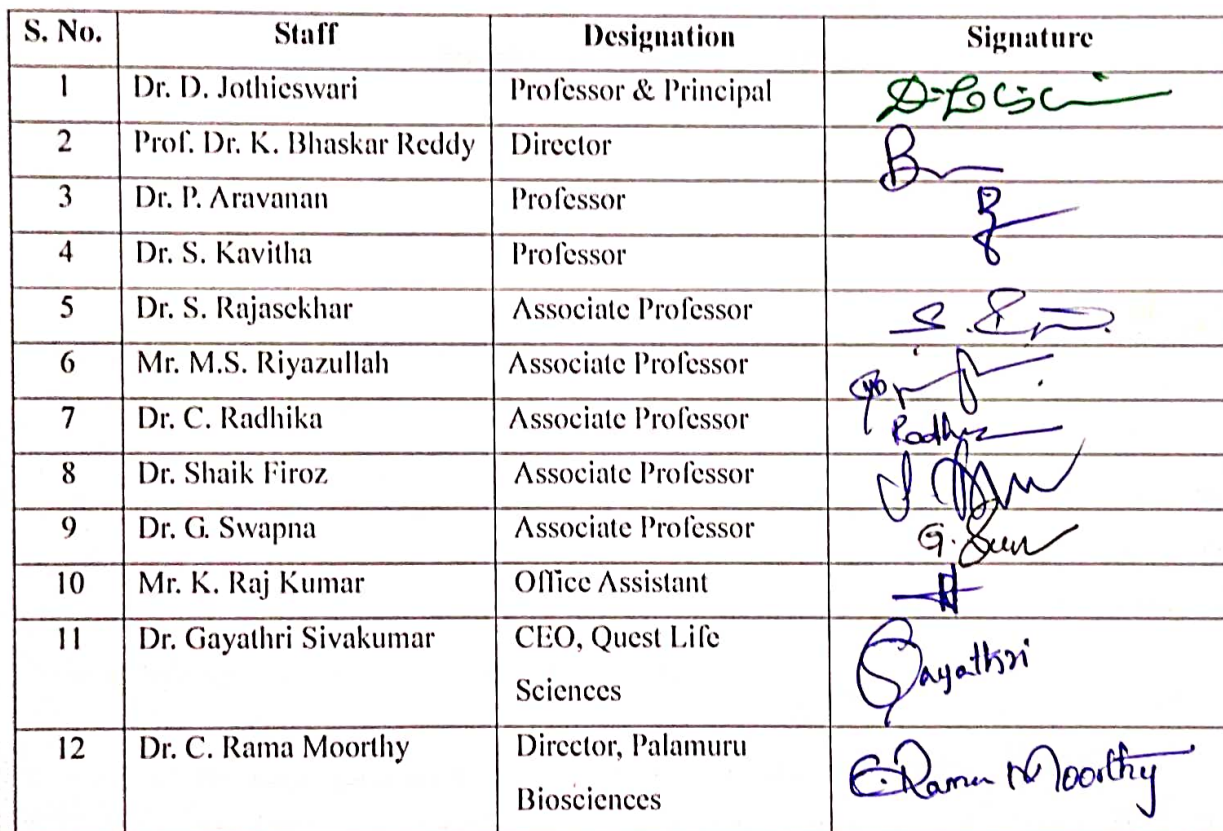 S. No. Staff Designation Signature
1 Dr. D. Jothieswari Professor & Principal
2 Prof. Dr. K. Bhaskar Reddy Director
3 Dr. P. Aravanan Professor
4 Dr. S. Kavitha Professor
5 Dr. S. Rajasekhar Associate Professor
6 Mr. M.S. Riyazullah Associate Professor
7 Dr. C. Radhika Associate Professor
8 Dr. Shaik Firoz Associate Professor
9 Dr. G. Swapna Associate Professor
10 Mr. K. Raj Kumar Office Assistant
11 Dr. Gayathri Sivakumar CEO, Quest Life
Sciences
Gayathri
12 Dr. C. Rama Moorthy Director, Palamuru
Biosciences
C. Rama Moorthy